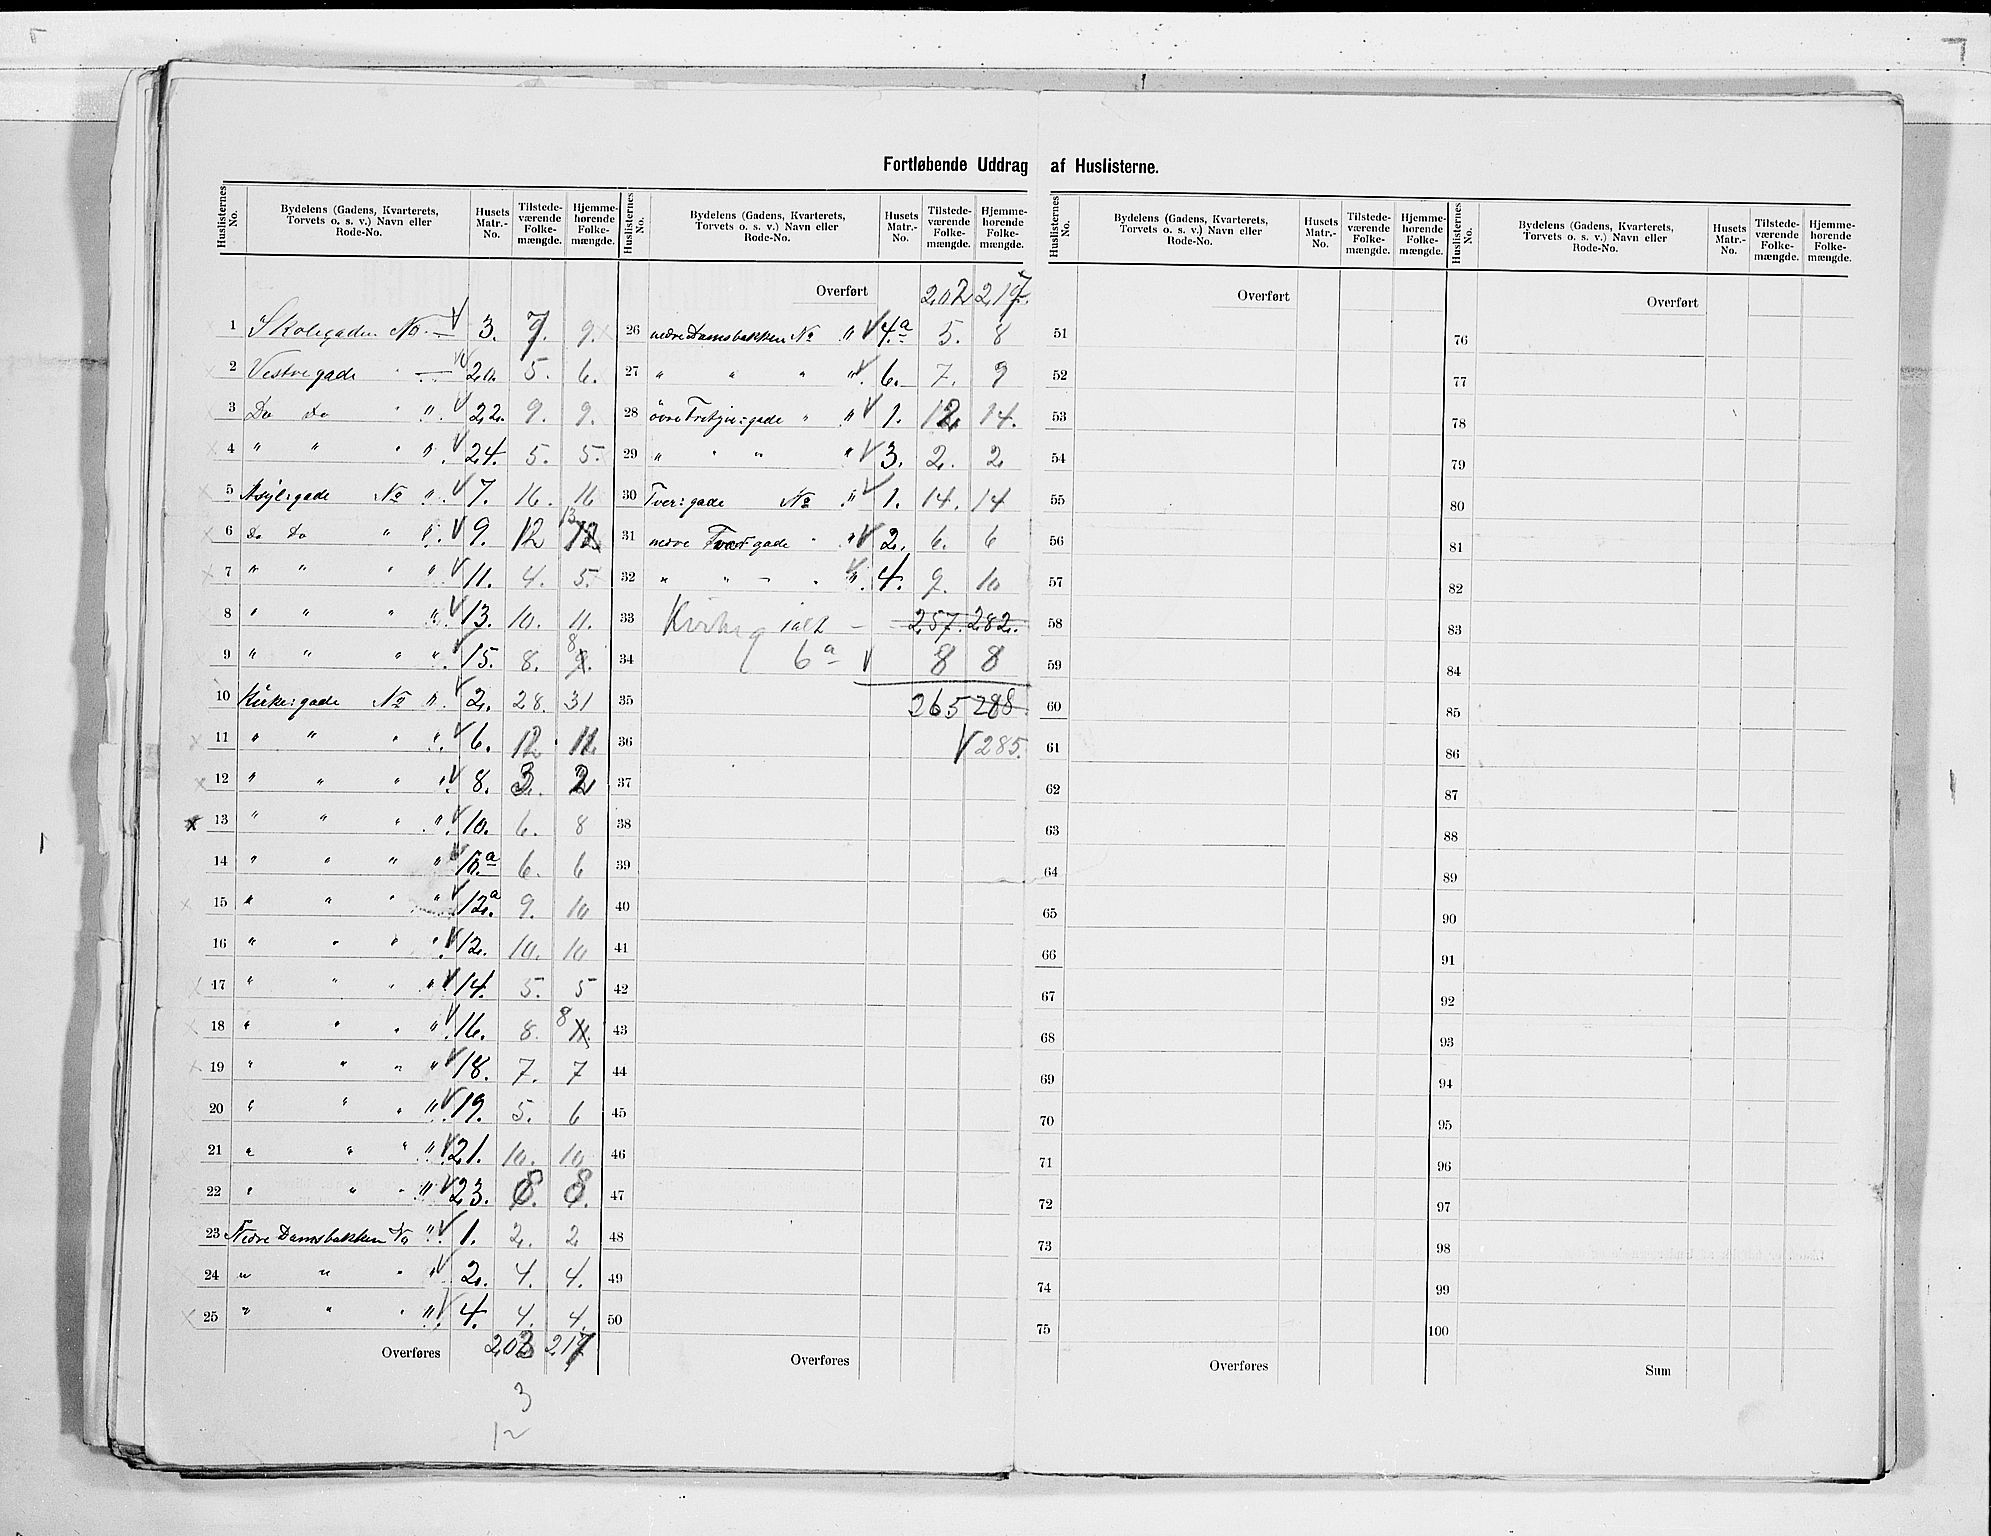 Fortløbende Uddrag af Huslisterne.
Huslisternes No. | Bydelens (Gadens, Kvarterets, Torvets o. s. v.) Navn eller Rode-No. | Husets Matr.-No. | Tilstede-værende Folke-mængde. | Hjemme-hørende Folke-mængde.
1 Skolegaden No. — 3. 7. 9.
2 Vestregade " — 20. 5. 6.
3 Do do " " 22. 9. 9.
4 " " " " 24. 5. 5.
5 Asyl:gade No " 7. 16. 16
6 Do do " " 9. 12 13 12
7 " " " " 11. 4. 5.
8 " " " " 13. 10. 11.
9 " " " " 15. 8. 8 9.
10 Kirke:gade No " 2. 28. 31
11 " " " " 6. 12 11
12 " " " " 8. 3. 2
13 " " " " 10. 6. 8
14 " " " " 10.a 6. 6
15 " " " " 12.a 9. 10
16 " " " " 12. 10. 10
17 " " " " 14. 5. 5
18 " " " " 16. 8. 8 11.
19 " " " " 18. 7. 7
20 " " " " 19. 5. 6
21 " " " " 21. 10. 10
22 " " " " 23. 8. 8.
23 Nedre Damsbakken No " 1. 2. 2
24 " " " " 2. 4. 4.
25 " " " " 4. 4. 4.
Overføres 203 217
3
12
Huslisternes No. | Bydelens (Gadens, Kvarterets, Torvets o. s. v.) Navn eller Rode-No. | Husets Matr.-No. | Tilstede-værende Folke-mængde. | Hjemme-hørende Folke-mængde.
Overført 202 217.
26 nedre Damsbakken No " 4.a 5. 8
27 " " " " 6. 7. 9
28 övre gade " " 1. 12. 14.
29 " " " " 3. 2. 2
30 Tver:gade No " 1. 14. 14
31 nedre Tvergade " " 2. 6. 6
32 " " " " 4. 9. 10
33 ialt — 257. 282.
34 6a 8 8
35 265 288.
36 285.
37
38
39
40
41
42
43
44
45
46
47
48
49
50
Overføres
Huslisternes No. | Bydelens (Gadens, Kvarterets, Torvets o. s. v.) Navn eller Rode-No. | Husets Matr.-No. | Tilstede-værende Folke-mængde. | Hjemme-hørende Folke-mængde.
Overført
51
52
53
54
55
56
57
58
59
60
61
62
63
64
65
66
67
68
69
70
71
72
73
74
75
Overføres
Huslisternes No. | Bydelens (Gadens, Kvarterets, Torvets o. s. v.) Navn eller Rode-No. | Husets Matr.-No. | Tilstede-værende Folke-mængde. | Hjemme-hørende Folke-mængde.
Overført
76
77
78
79
80
81
82
83
84
85
86
87
88
89
90
91
92
93
94
95
96
97
98
99
100
Sum